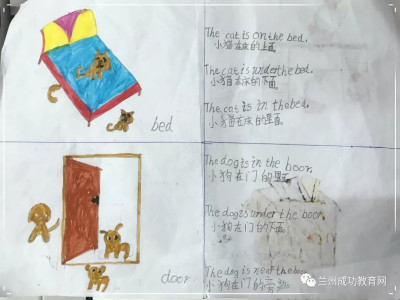 The cat is on the bed.
小猫在床的上面
The cat is under the bed.
小猫在床的下面。
The cat is in the bed.
小猫在床的里面。
bed
The dog is in the boor.
小狗在门的里面
The dog is under the boor.
小狗在门的下面。
The dog is
小狗在门的旁边。
door
兰州成功教育网